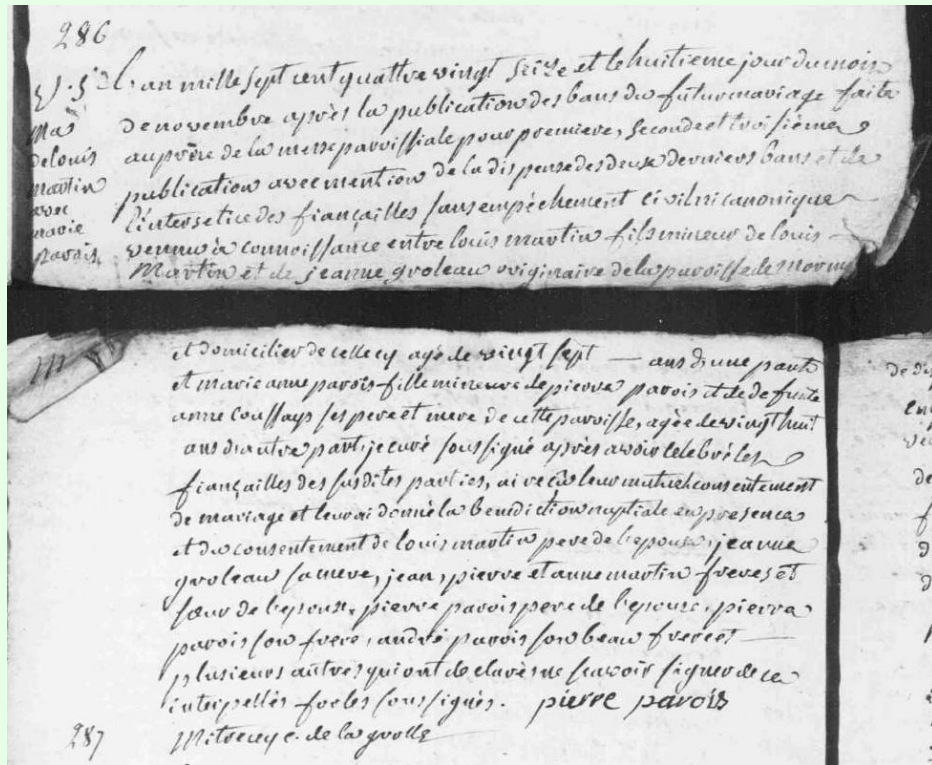 286
L'an mille sept cent quattre vingt seize et le huitieme jour du mois
de novembre après la publication des bans du futur mariage faite
au prône de la messe paroissiale pour premiere, seconde et troisième
publication avec mention de la dispense des deux derniers bans et de
l'intersetice des fiançailles sans empêchement civil ni canonique
vennu à connoissance entre louis martin fils mineur de louis
Martin et de jeanne groleau originaire de la paroisse de
Ma
de louis
martin
avec
marie
Parois
et domicilier de celle cy agé de vingt sept — ans d'une part
et marie anne parois fille mineure de pierre parois et de defunte
anne Coussays ses pere et mere de cette paroisse, agée de vingt huit
ans d'autre part, je curé soussigné après avoir célébré les
fiançailles des susdites parties, ai reçu leur mutuel consentement
de mariage et leur ai donné la benediction nuptiale en presence
et du consentement de louis martin pere de l'epoux, jeanne
groleau sa mere, jean, pierre et anne martin freres et
sœur de l'epoux, pierre parois pere de l'epouse, pierre
parois son frere, andré parois son beau frere et
plusieurs autres qui ont declarés ne scavoir signer de ce
interpellés fors les soussignés. pierre parois
c. de la grolle
287